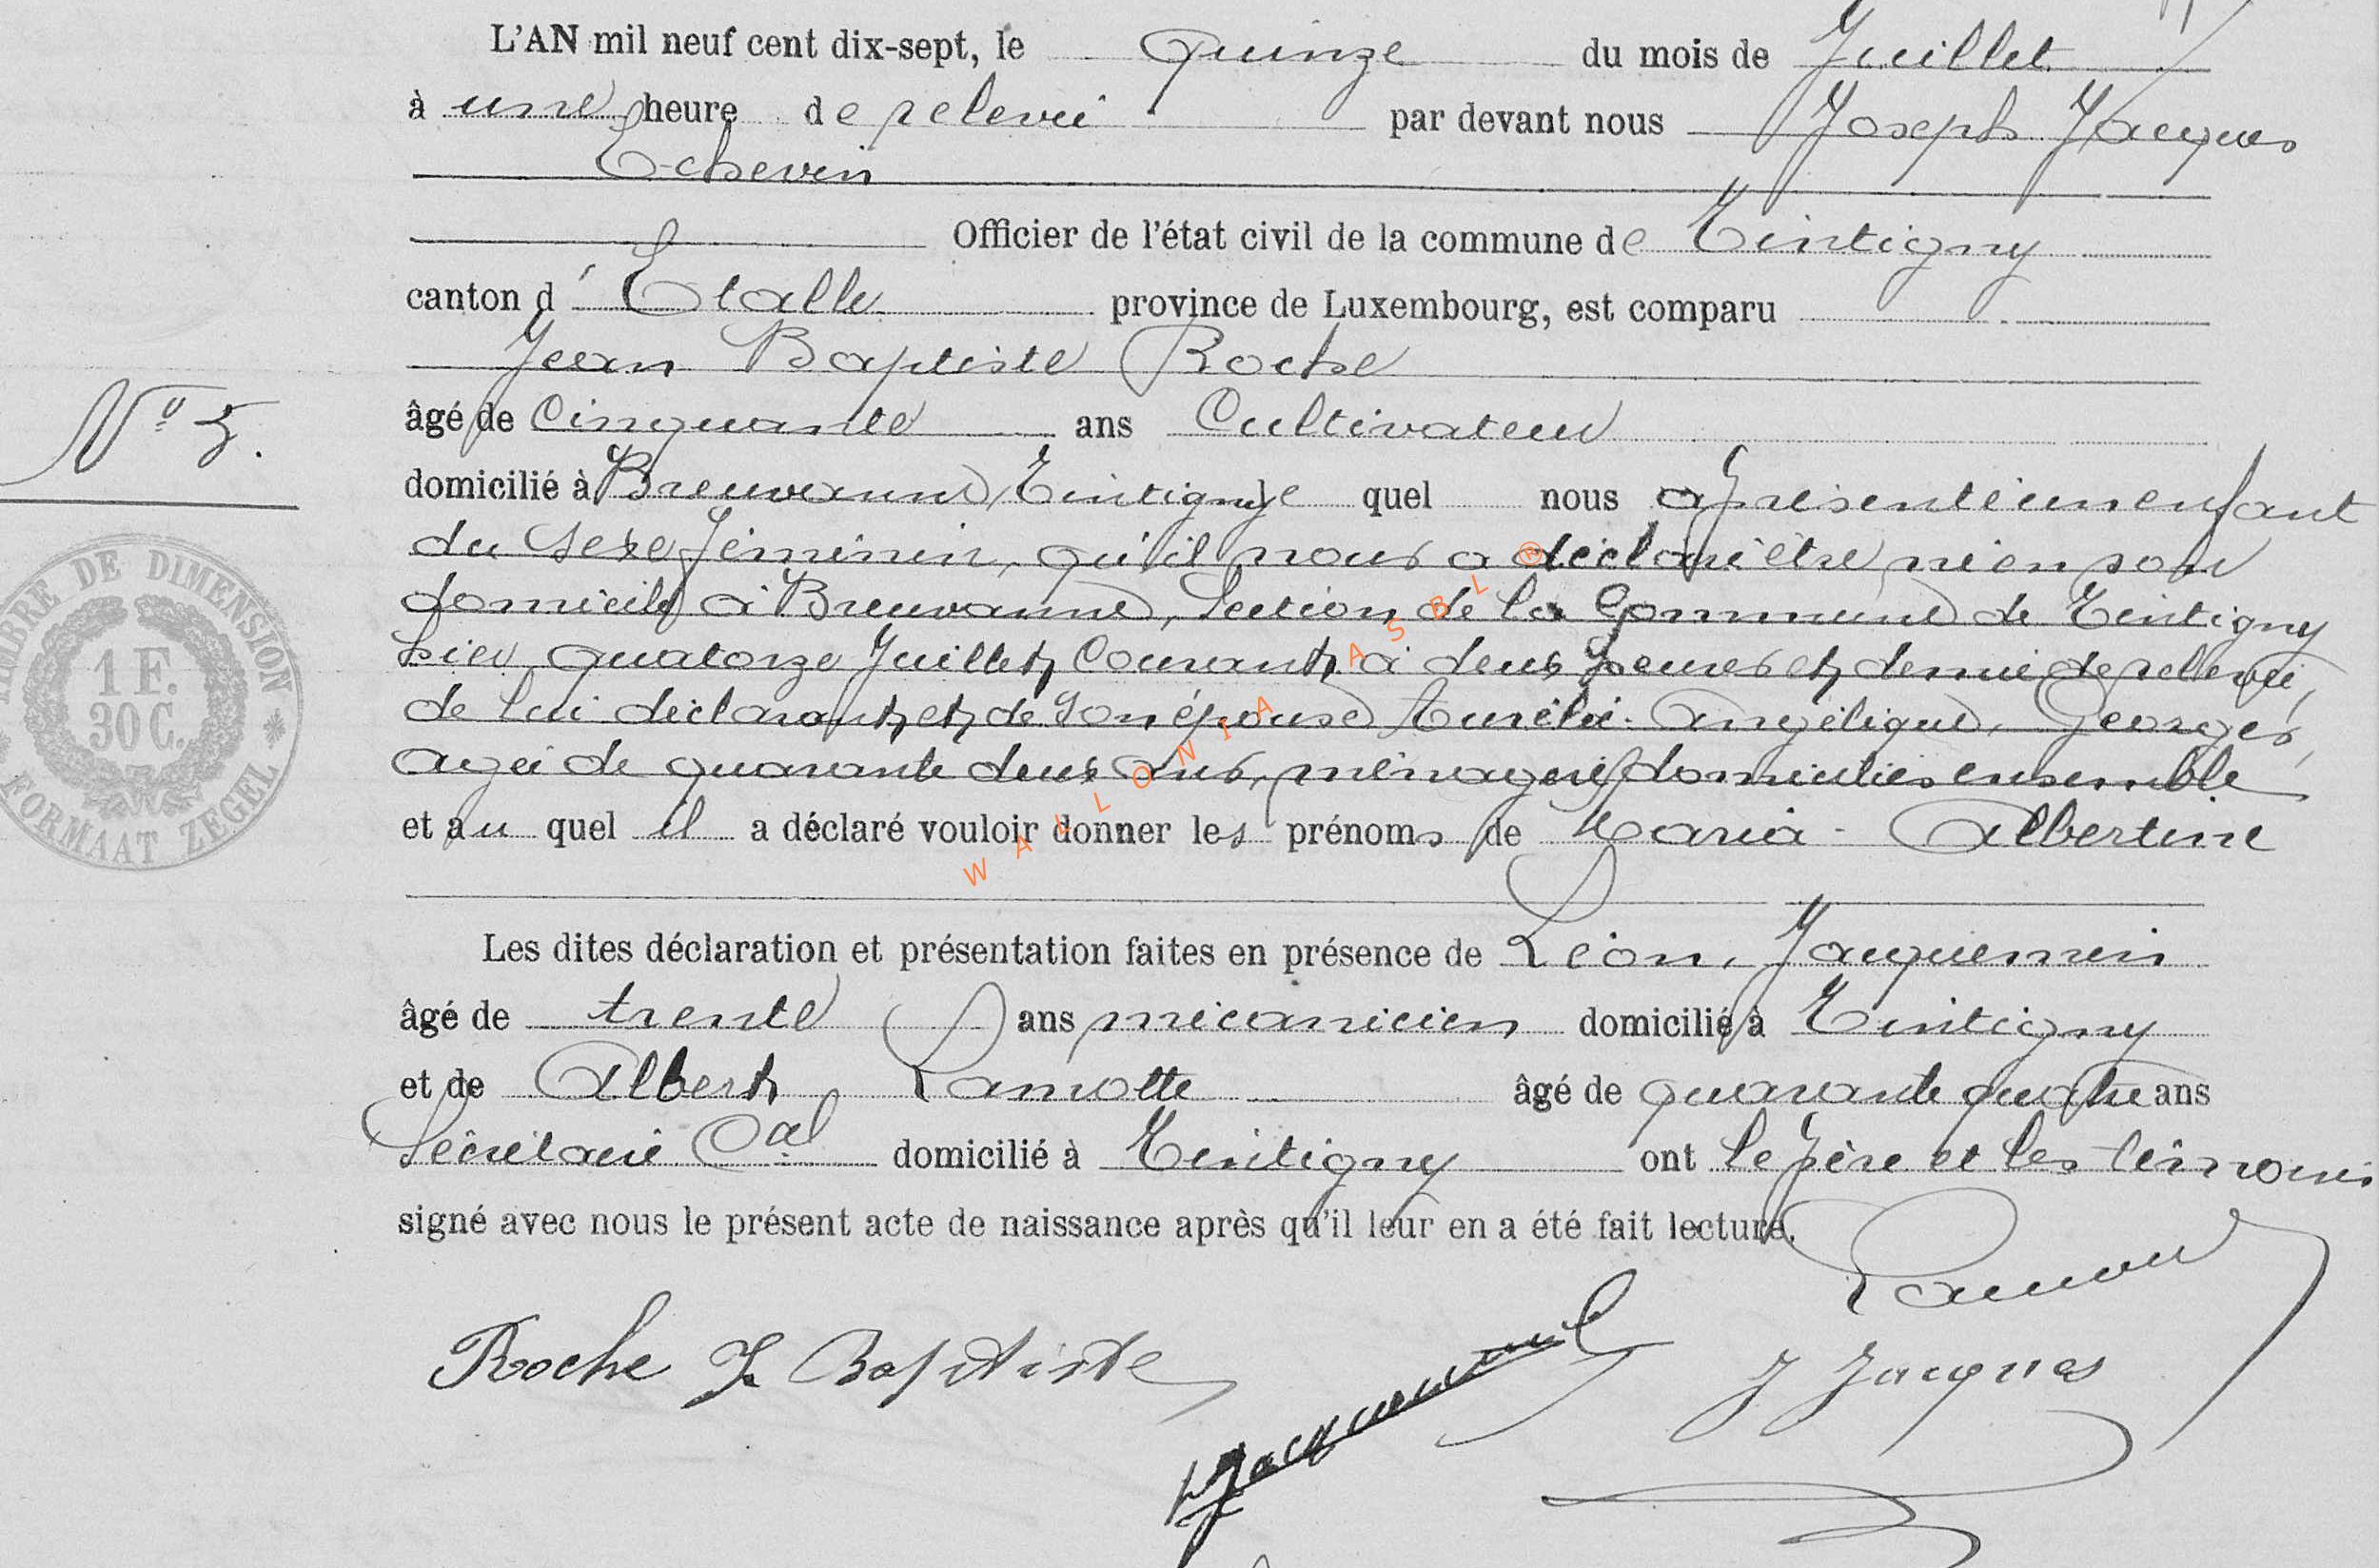 L'AN mil neuf cent dix-sept, le Quinze du mois de Juillet
à une heure de relevée par devant nous Joseph Jacques
Echevin
Officier de l'état civil de la commune de Tintigny
canton d'Etalle province de Luxembourg, est comparu
Jean Baptiste Roche
N° 5.
âgé de Cinquante ans Cultivateur
domicilié à Breuvanne, Tintigny le quel nous a présenté un enfant
du sexe féminin, qu'il nous a déclaré être né en son
domicile à Breuvanne, Section de la Commune de Tintigny
hier quatorze Juillet Courant à deux heures et demie de relevée,
de lui déclarant et de son épouse Aurélie Angélique, Georges,
agée de quarante deux ans, ménagère domiciliés ensemble
et au quel il a déclaré vouloir donner les prénoms de Maria - Albertine
Les dites déclaration et présentation faites en présence de Léon, Jacquemin
âgé de trente ans mécanicien domicilié à Tintigny
et de Albert Lamotte âgé de quarante quatre ans
Secrétaire Cal domicilié à Tintigny ont le père et les témoins
signé avec nous le présent acte de naissance après qu'il leur en a été fait lecture.
Roche J Baptiste
Jacquemin
J Jacques
TIMBRE DE DIMENSION
1 F.
30 C.
FORMAAT ZEGEL
WALLONIA ASBL ®